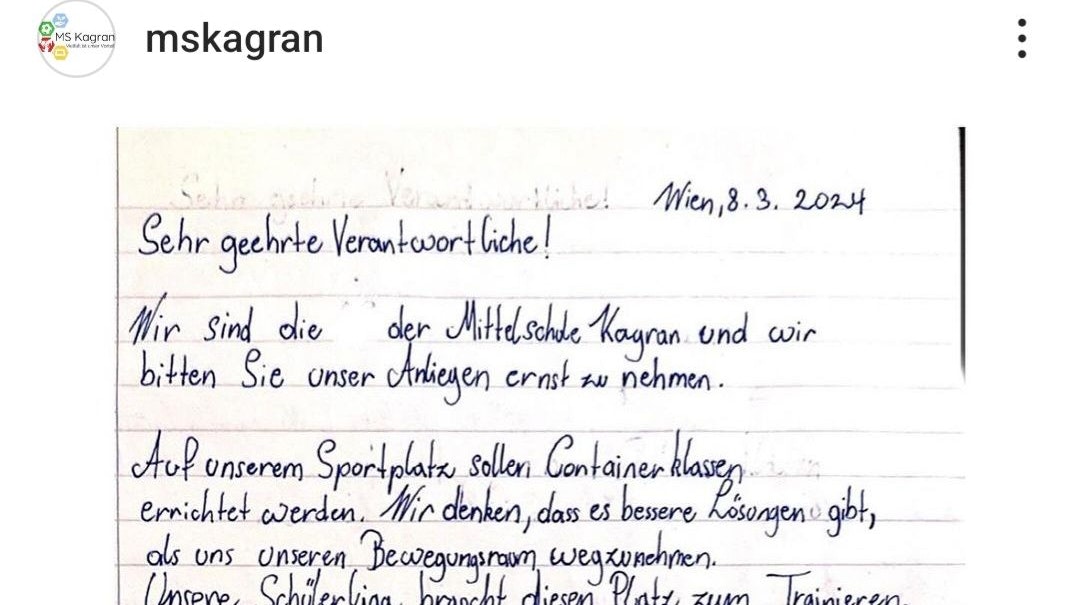 MS Kagran
Vielfalt ist unser Vorteil
mskagran
Sehr geehrte Verantwortliche!
Wien, 8. 3. 2024
Sehr geehrte Verantwortliche!
Wir sind die der Mittelschule Kagran und wir
bitten Sie unser Anliegen ernst zu nehmen.
Auf unserem Sportplatz sollen Containerklassen
errichtet werden. Wir denken, dass es bessere Lösungen gibt,
als uns unseren Bewegungsraum wegzunehmen.
Unsere Schülerliga braucht diesen Platz zum Trainieren.